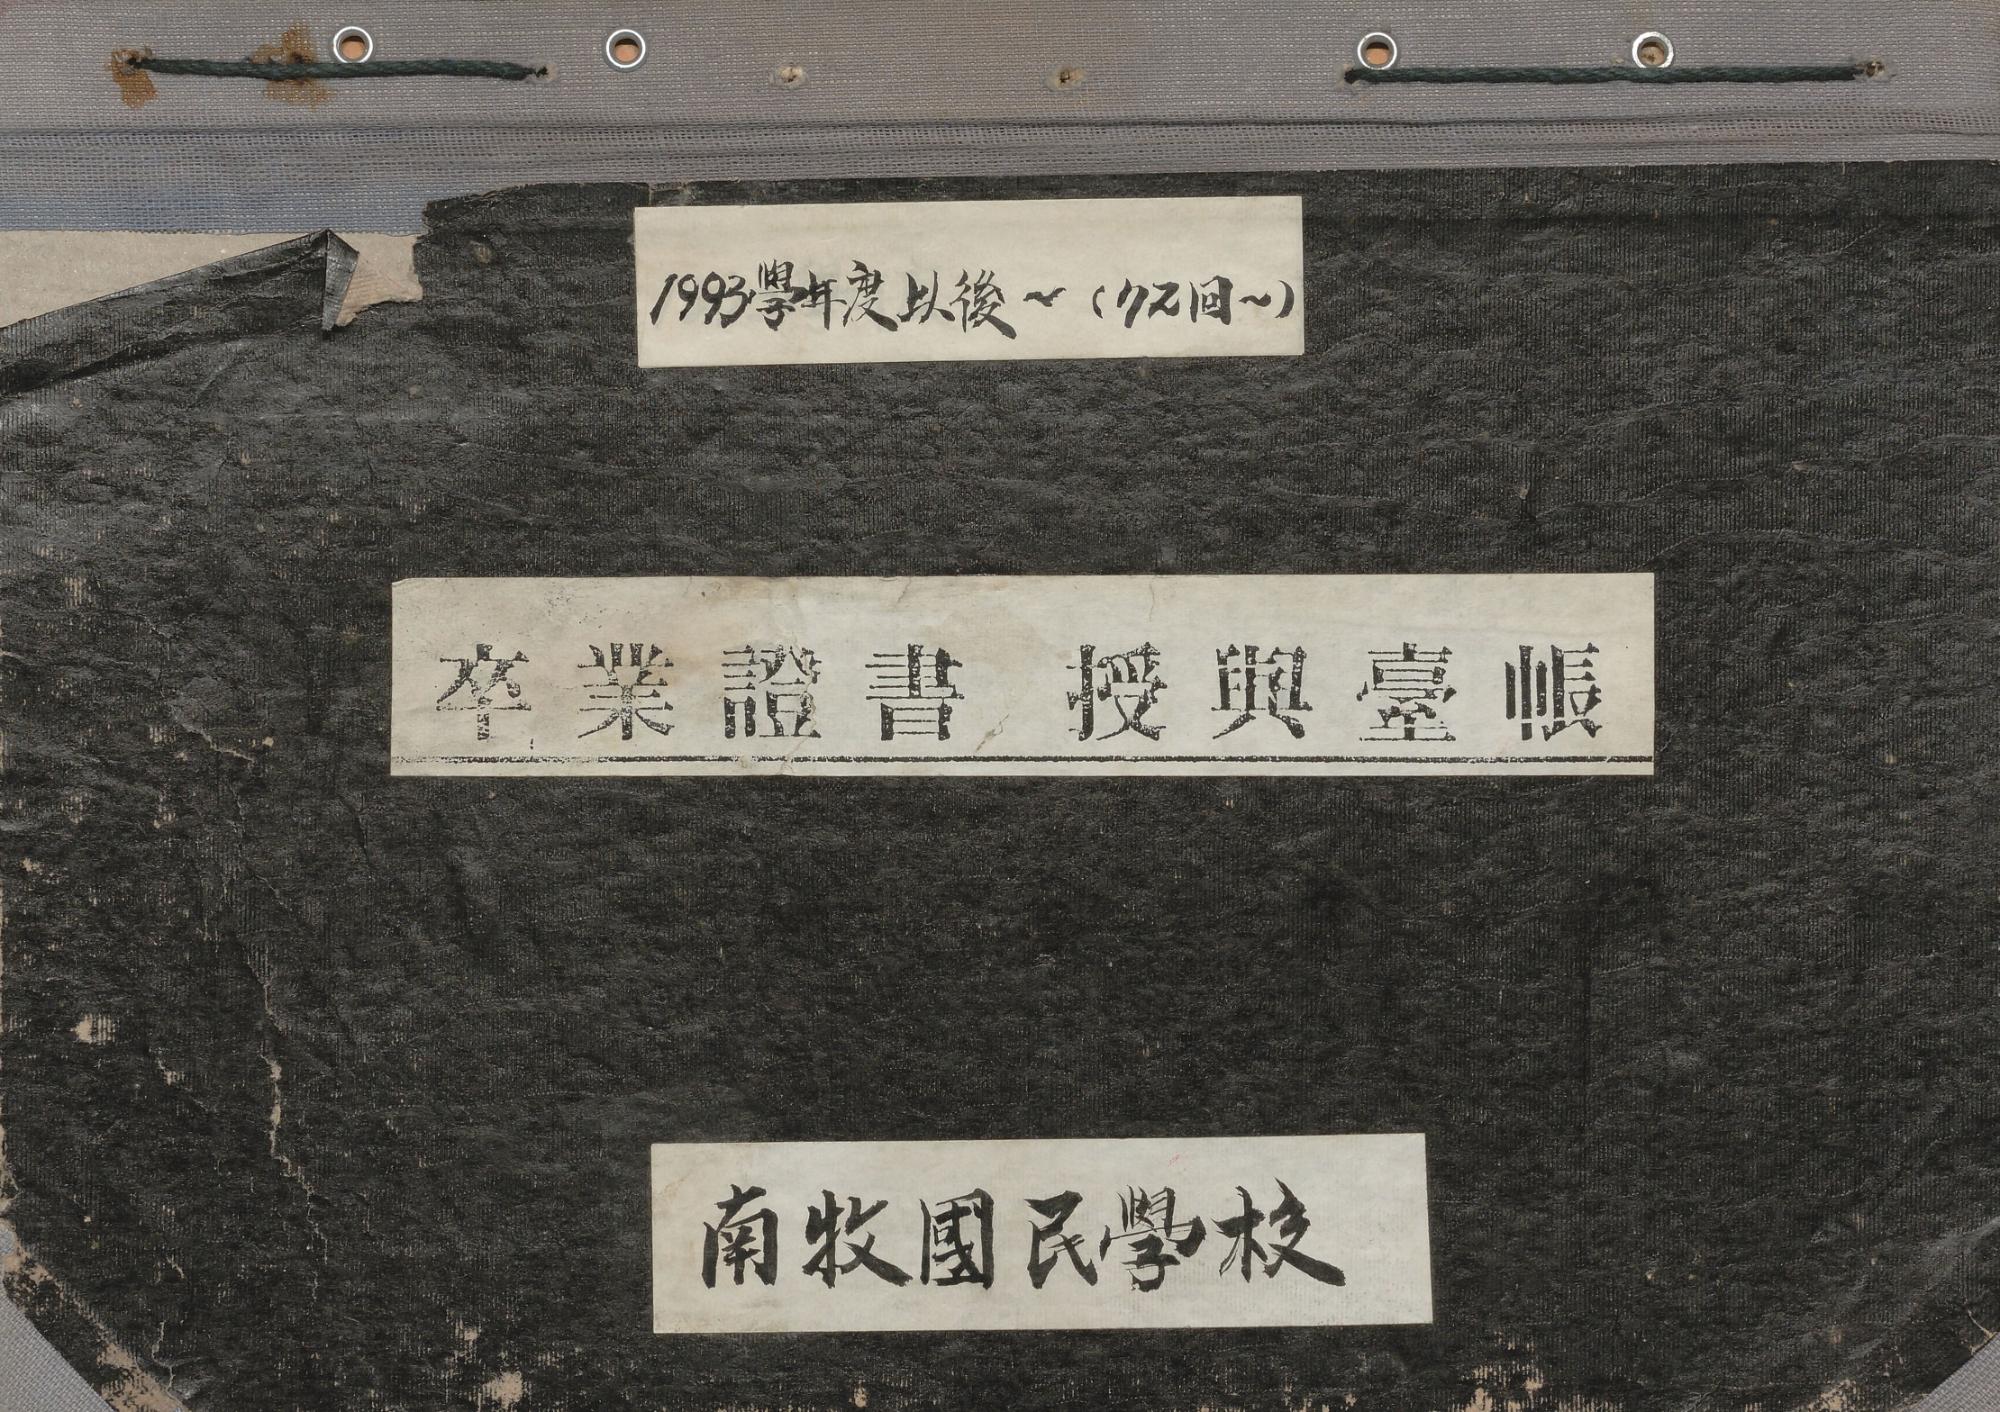 1993學年度以後~(72回~)
卒業證書 授與臺帳
南牧國民學校